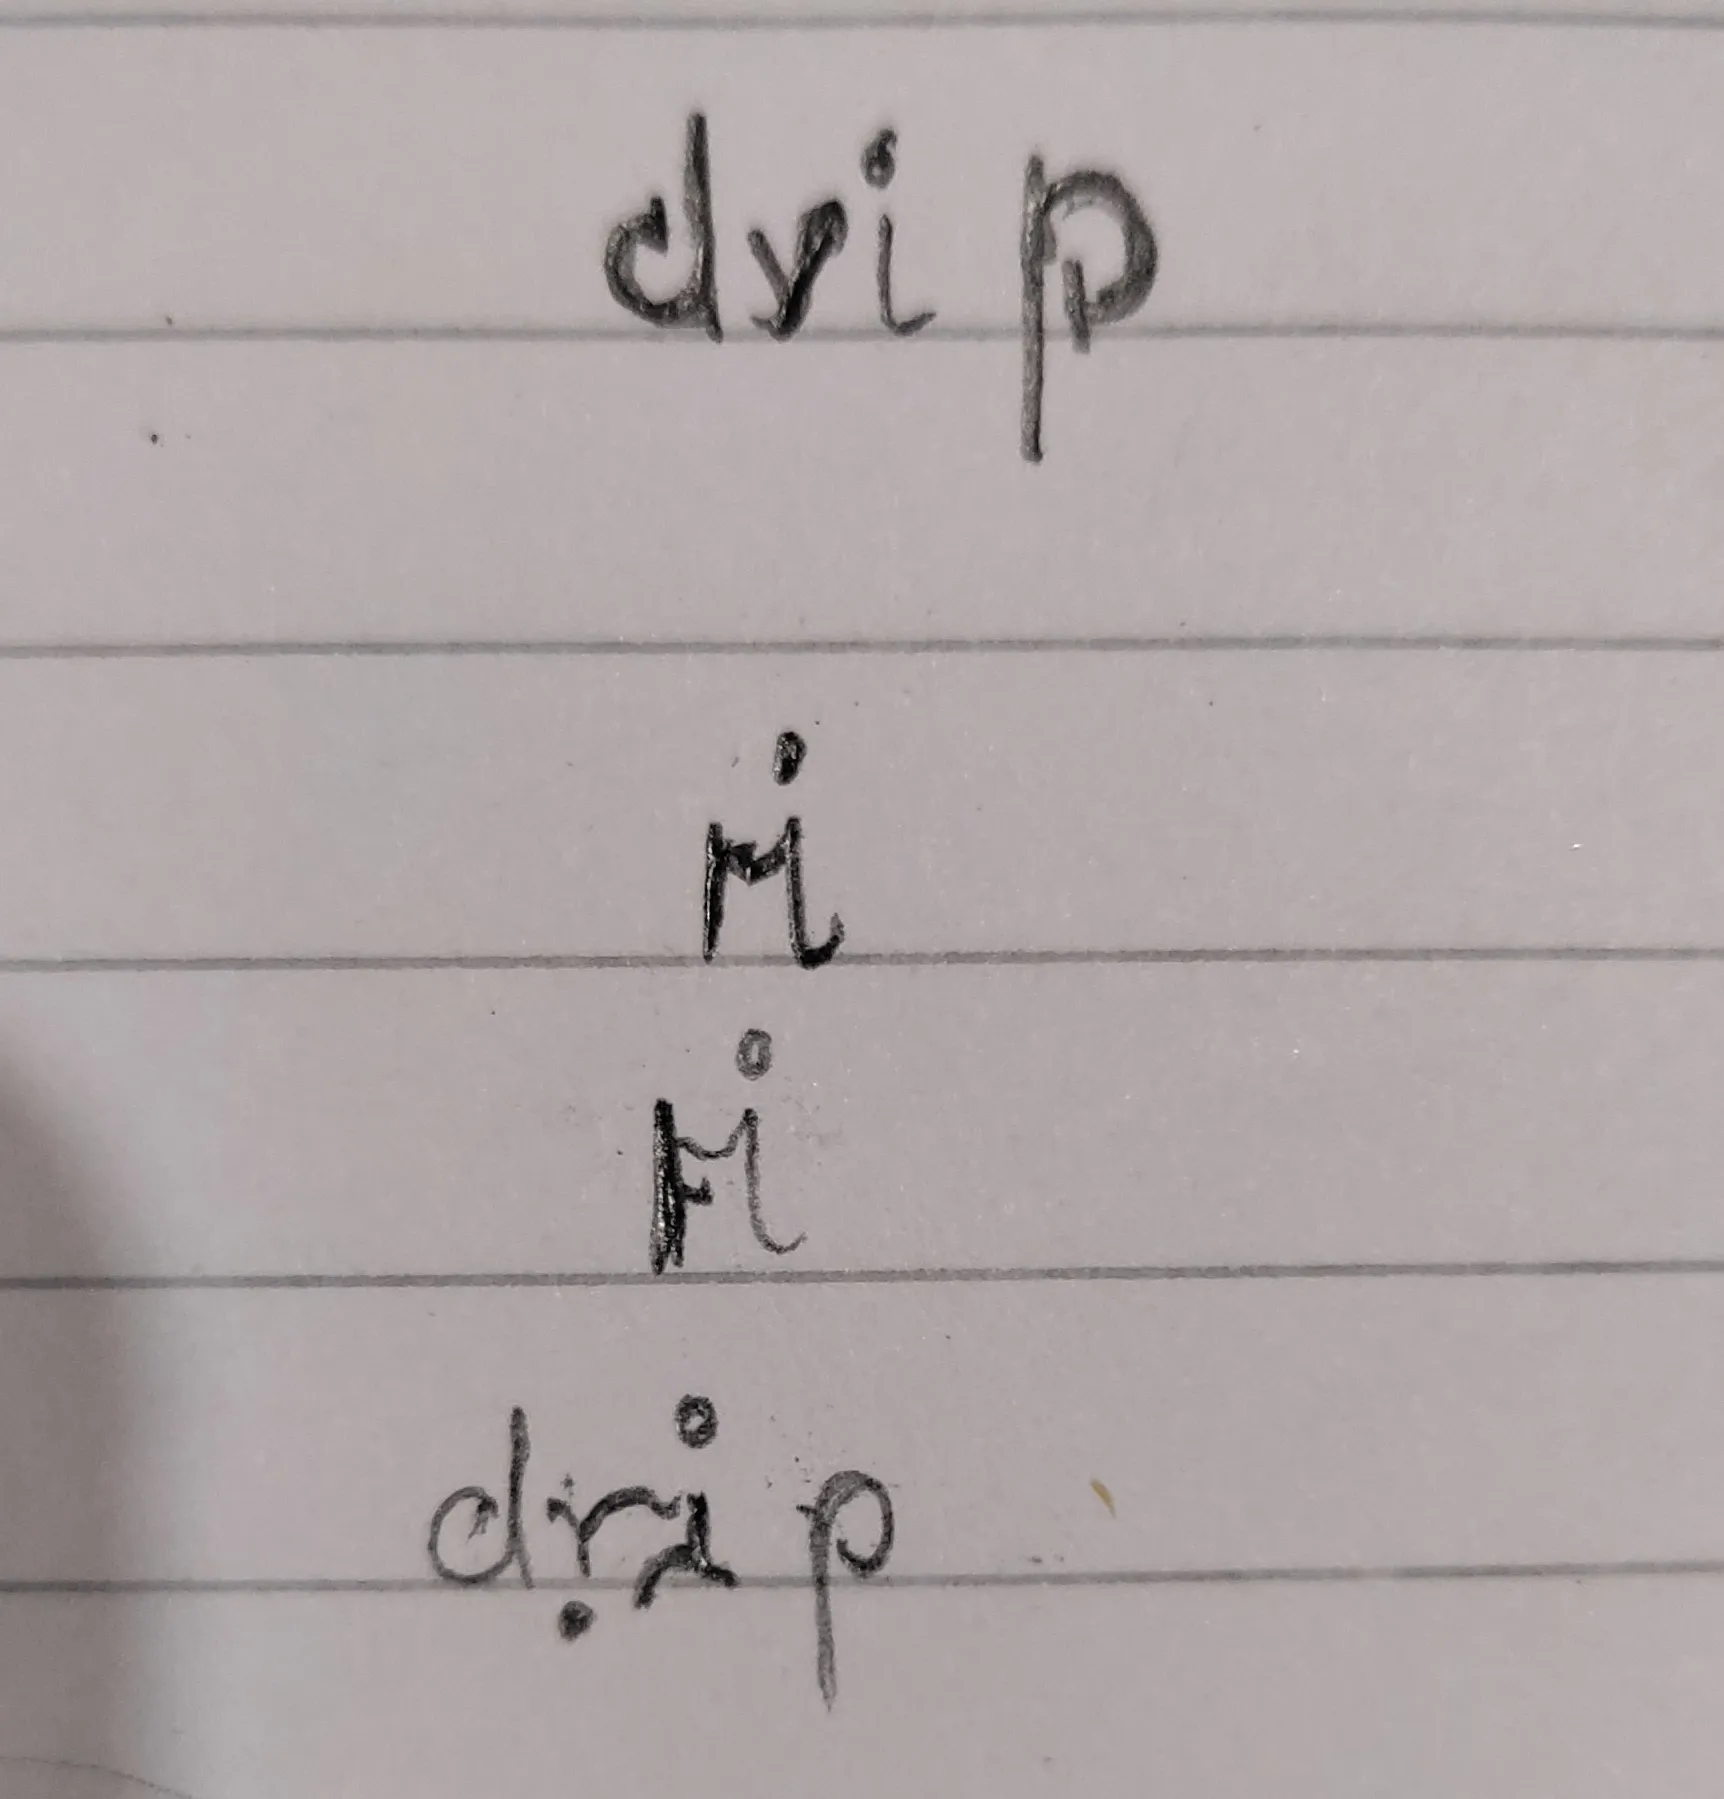 drip
ri
ri
drip